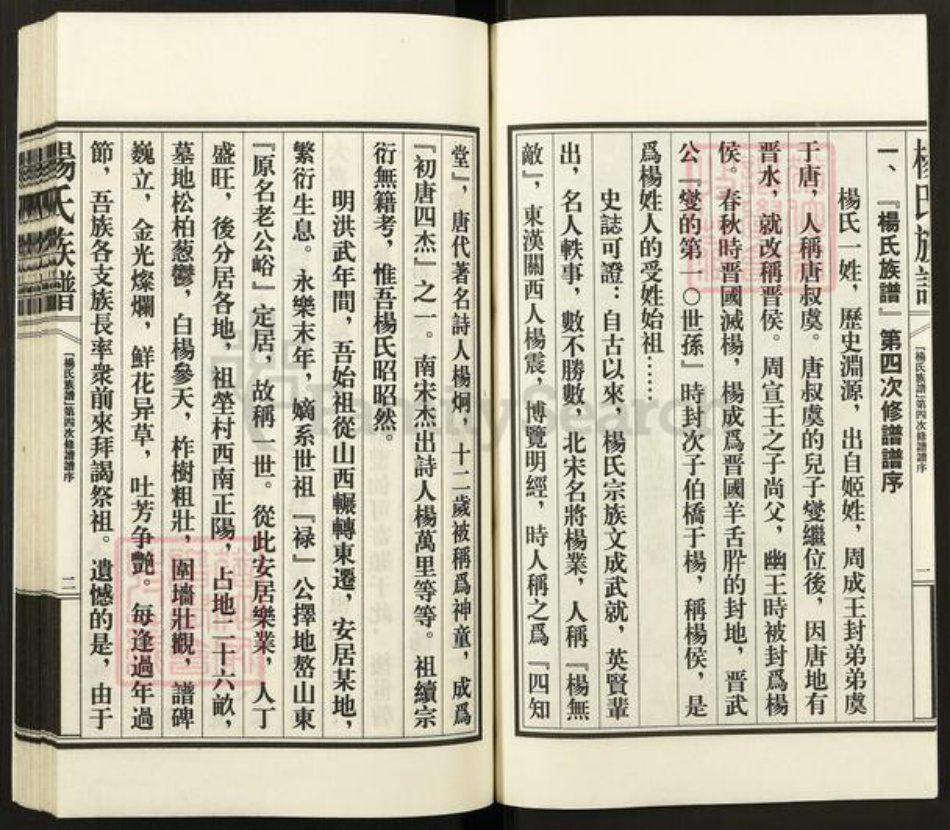 楊氏族譜
『楊氏族譜』第四次修譜譜序
一
一、『楊氏族譜』第四次修譜譜序
楊氏一姓，歷史淵源，出自姬姓，周成王封弟弟虞
于唐，人稱唐叔虞。唐叔虞的兒子燮繼位後，因唐地有
晋水，就改稱晋侯。周宣王之子尚父，幽王時被封爲楊
侯。春秋時晋國滅楊，楊成爲晋國羊舌肸的封地，晋武
公『燮的第一〇世孫』時封次子伯橋于楊，稱楊侯，是
爲楊姓人的受姓始祖……
史誌可證：自古以來，楊氏宗族文成武就，英賢輩
出，名人軼事，數不勝數，北宋名將楊業，人稱『楊無
敵』，東漢關西人楊震，博覽明經，時人稱之爲『四知
堂』，唐代著名詩人楊炯，十二歲被稱爲神童，成爲
『初唐四杰』之一。南宋杰出詩人楊萬里等等。祖續宗
衍無籍考，惟吾楊氏昭昭然。
明洪武年間，吾始祖從山西輾轉東遷，安居某地，
繁衍生息。永樂末年，嫡系世祖『禄』公擇地嶅山東
『原名老公峪』定居，故稱一世。從此安居樂業，人丁
盛旺，後分居各地，祖塋村西南正陽，占地二十六畝，
墓地松柏葱鬱，白楊參天，柞樹粗壯，圍墻壯觀，譜碑
巍立，金光燦爛，鮮花异草，吐芳争艷。每逢過年過
節，吾族各支族長率衆前來拜謁祭祖。遺憾的是，由于
楊氏族譜
『楊氏族譜』第四次修譜譜序
二
FamilySearch